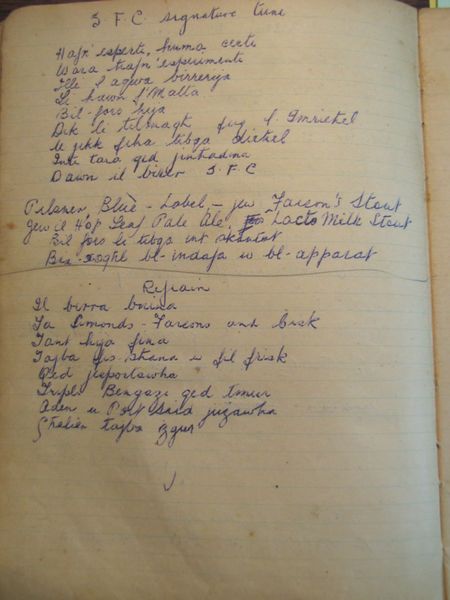 S F.C. signature tune
Hafn esperti, huma certi
Wara hafn esperimenti
Illi l aqwa birrerija
Li hawn f'Malta
Bil-fors hija
Dik li tilmaqt fuq l. Imriehel
U jekk fiha tibqa diehel
Inti tara qed jinhadma
Dawn il birer S.F.C
Pilsener, Blue-Label,- jew Farson's Stout
Jew il Hop Leaf Pale Ale, Lacto Milk Stout
Bil fors li tibqa int skantat
Bix-xoghl bl-indafa w bl-apparat
Refrain
Il birra bnina
Ta Simonds-Farsons and Cisk
Tant hija fina
Tajba fis-shana u fil frisk
Qed jesportawha
Tripli Bengazi qed tmur
Aden u Port Said juzawha
Ghaliex tajba zgur